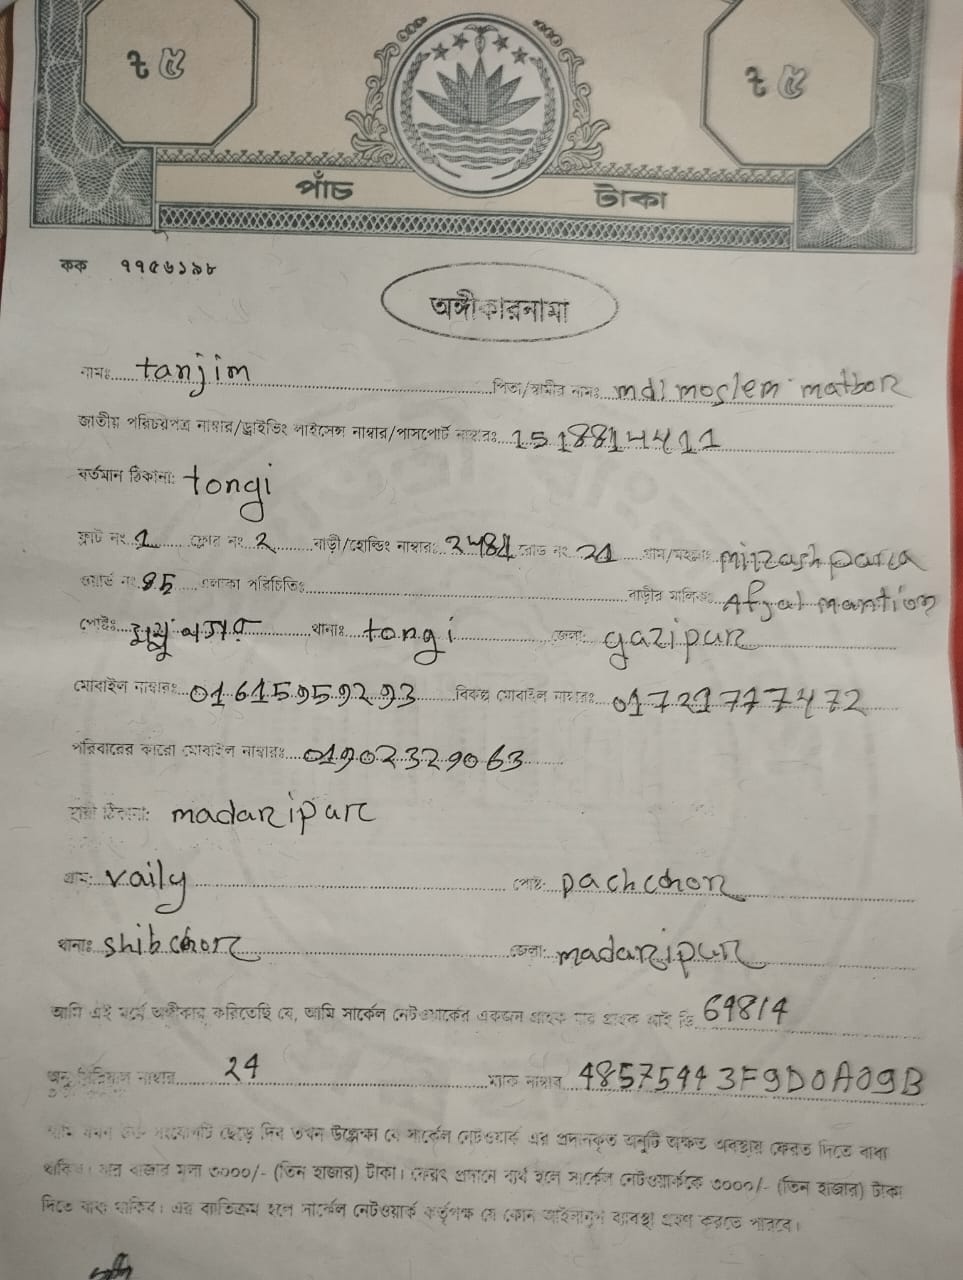 ৳ ৫ ৳ ৫
পাঁচ টাকা
কক ৭৭৫৬১৯৮
অঙ্গীকারনামা
নামঃ tanjim পিতা/স্বামীর নামঃ md/ moslem matbor
জাতীয় পরিচয়পত্র নাম্বার/ড্রাইভিং লাইসেন্স নাম্বার/পাসপোর্ট নাম্বারঃ 1518814411
বর্তমান ঠিকানা: tongi
ফ্লাট নং 1 ফ্লোর নং 2 বাড়ী/হোল্ডিং নাম্বারঃ রোড নং 21 গ্রাম/মহল্লাঃ mirzash para
ওয়ার্ড নং এলাকা পরিচিতিঃ বাড়ীর মালিকঃ Afzal mantion
পোষ্টঃ থানাঃ tongi জেলা: gazipur
মোবাইল নাম্বারঃ 01615959293 বিকল্প মোবাইল নাম্বারঃ 01721777472
পরিবারের কারো মোবাইল নাম্বারঃ 01902329063
স্থায়ী ঠিকানা: madaripur
গ্রাম: vaily পোষ্ট: pachchor
থানাঃ shibchor জেলা: madaripur
আমি এই মর্মে অঙ্গীকার করিতেছি যে, আমি সার্কেল নেটওয়ার্কের একজন গ্রাহক যার গ্রাহক আই ডি 69814
অনু সিরিয়াল নাম্বার 24 ম্যাক নাম্বার 48575443F9D0A09B
আমি যখন উক্ত সংযোগটি ছেড়ে দিব তখন উল্লেক্ষ্য যে সার্কেল নেটওয়ার্ক এর প্রদানকৃত অনুটি অক্ষত অবস্থায় ফেরত দিতে বাধ্য
থাকিব। যার বাজার মূল্য ৩০০০/- (তিন হাজার) টাকা। ফেরৎ প্রদানে ব্যর্থ হলে সার্কেল নেটওয়ার্ককে ৩০০০/- (তিন হাজার) টাকা
দিতে বাধ্য থাকিব। এর ব্যতিক্রম হলে সার্কেল নেটওয়ার্ক কর্তৃপক্ষ যে কোন আইনানুগ ব্যবস্থা গ্রহণ করতে পারবে।